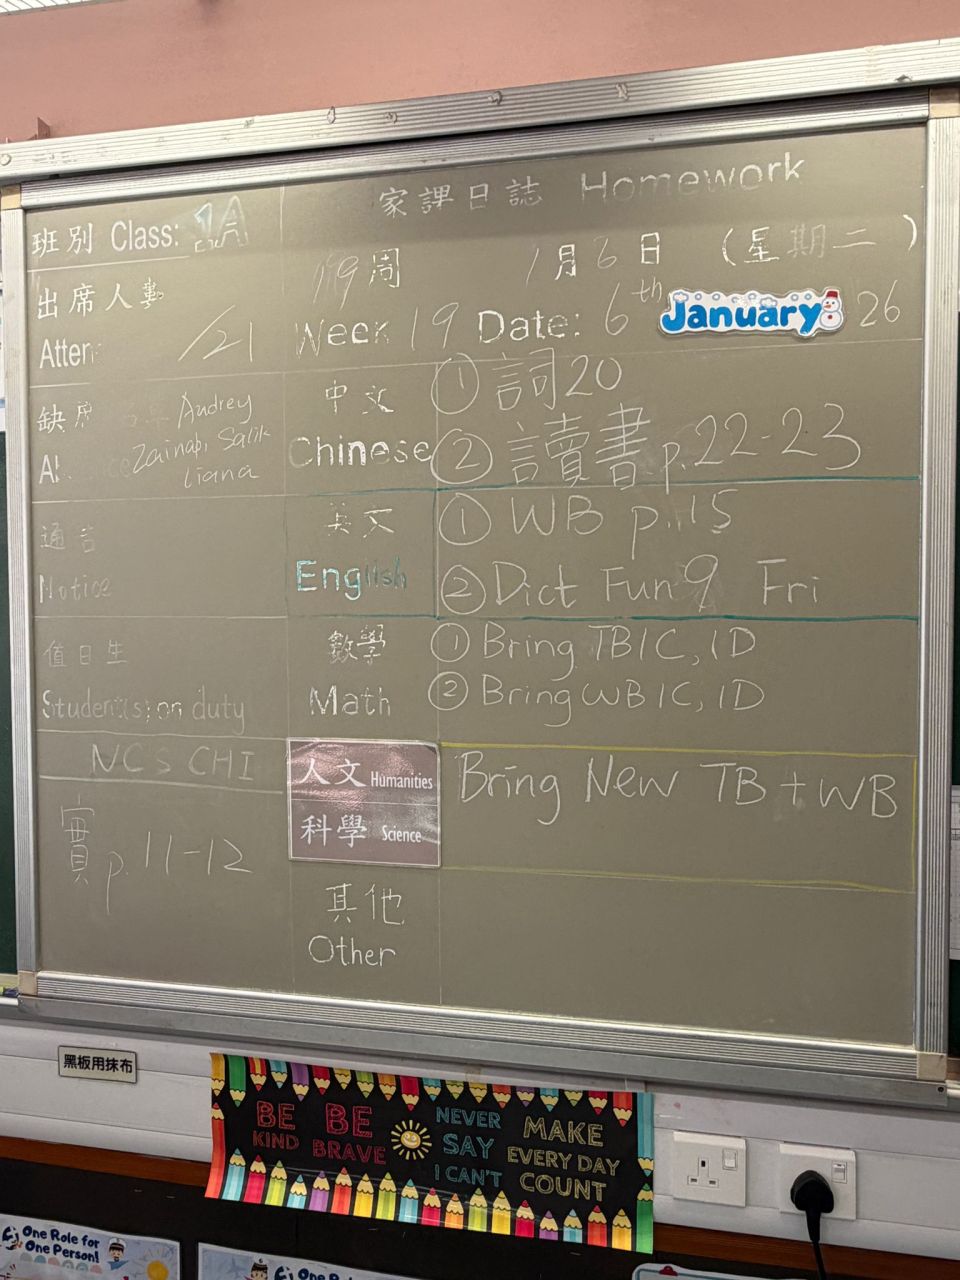 家課日誌 Homework
班別 Class: 1A
出席人數
/21
第19周 1月6日 (星期二)
Week 19 Date: 6th January 26
缺席
Audrey
Zainab, Salik
Liana
中文
Chinese
① 詞20
② 讀書 p.22-23
通告
Notice
英文
English
① WB p.15
② Dict Fun 9 Fri
值日生
Student(s) on duty
數學
Math
① Bring TB1C, 1D
② Bring WB1C, 1D
NCS CHI
賣 p.11-12
人文 Humanities
科學 Science
Bring New TB + WB
其他
Other
黑板用抹布
BE KIND
BE BRAVE
NEVER SAY I CAN'T
MAKE EVERY DAY COUNT
One Role for
One Person!
One Role